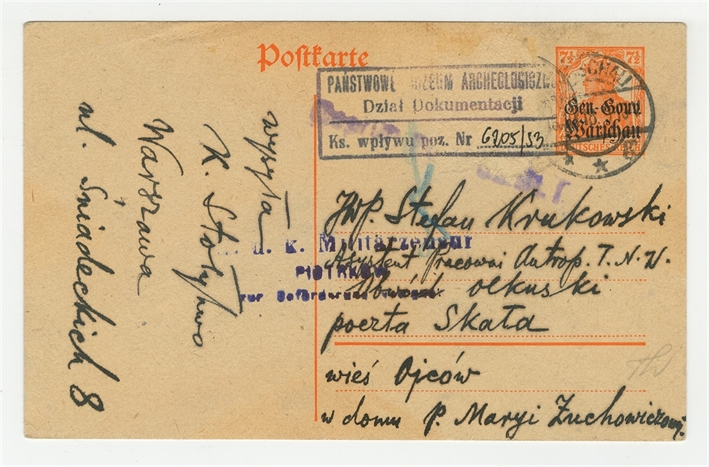 Postkarte
7½ 7½
Gen.-Gouv.
Warschau
PAŃSTWOWE MUZEUM ARCHEOLOGICZNE
Dział Dokumentacji
Ks. wpływu poz. Nr 6205/53
u. k. Militärzensur
PIOTRKÓW
zur Beförderung
wysyła
K. Stołyhwo
Warszawa
ul. Śniadeckich 8
JWP. Stefan Krukowski
Asystent Pracowni Antrop. T. N. W.
Obwód olkuski
poczta Skała
wieś Ojców
w domu P. Maryi Żuchowiczowej.